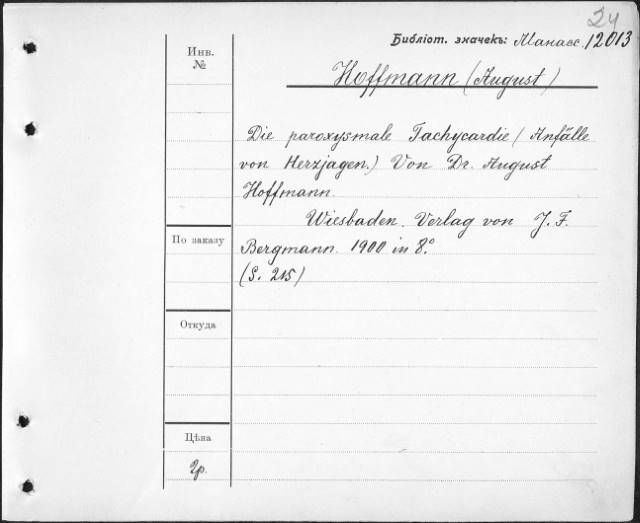 24
Библіот. значекъ: Манасс. 12013
Инв.
№
Hoffmann (August)
Die paroxysmale Tachycardie (Anfälle
von Herzjagen.) Von Dr. August
Hoffmann.
Wiesbaden. Verlag von J. F.
По заказу
Bergmann. 1900 in 8.°
(S. 215)
Откуда
Цѣна
2р.